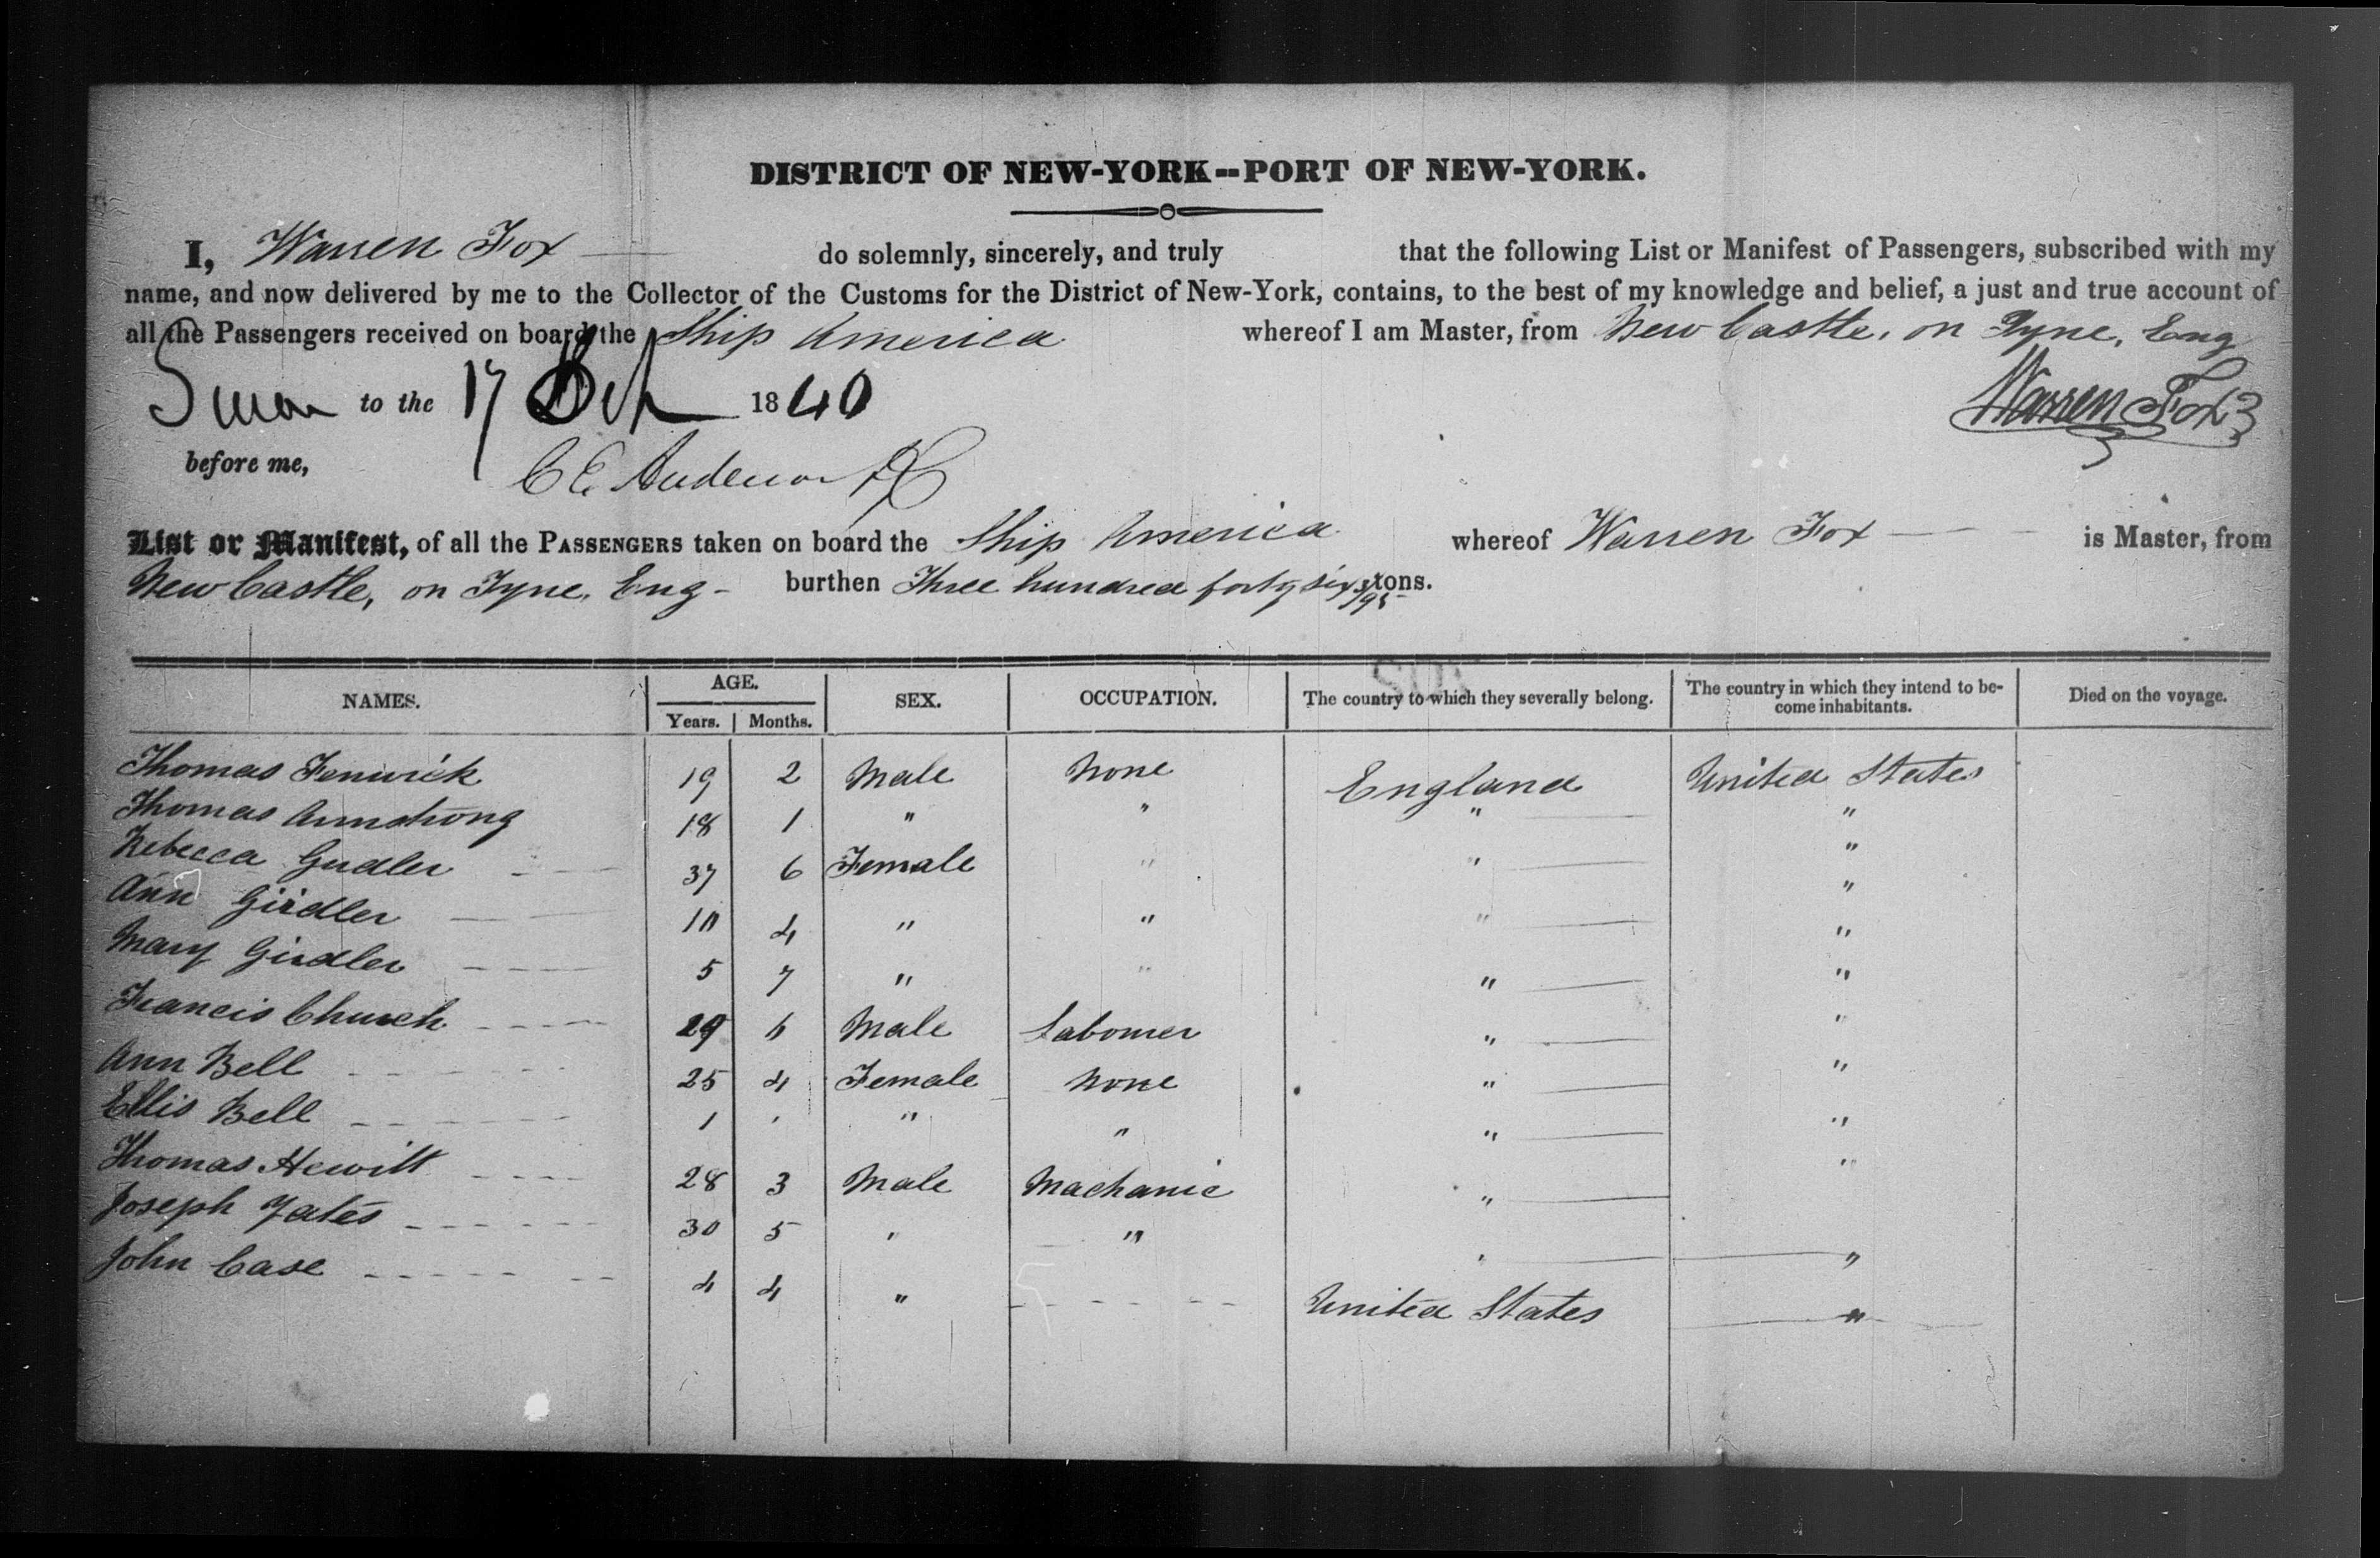 DISTRICT OF NEW-YORK--PORT OF NEW-YORK.
I, Warren Fox do solemnly, sincerely, and truly that the following List or Manifest of Passengers, subscribed with my
name, and now delivered by me to the Collector of the Customs for the District of New-York, contains, to the best of my knowledge and belief, a just and true account of
all the Passengers received on board the Ship America whereof I am Master, from New Castle, on Tyne, Eng
Sworn to the 17 Oct 1840 Warren Fox
before me, C E Anderson DC
List or Manifest, of all the PASSENGERS taken on board the Ship America whereof Warren Fox is Master, from
New Castle, on Tyne, Eng - burthen Three hundred forty six tons.
NAMES. AGE. Years. Months. SEX. OCCUPATION. The country to which they severally belong. The country in which they intend to be-come inhabitants. Died on the voyage.
Thomas Fenwick 19 2 Male None England United States
Thomas Armstrong 18 1 " " " "
Rebecca Girdler 37 6 Female " " "
Ann Girdler 10 4 " " " "
Mary Girdler 5 7 " " " "
Francis Church 29 6 Male Labourer " "
Ann Bell 25 4 Female None " "
Ellis Bell 1 " " " " "
Thomas Hewitt 28 3 Male Machanic " "
Joseph Yates 30 5 " " " "
John Case 4 4 " United States "